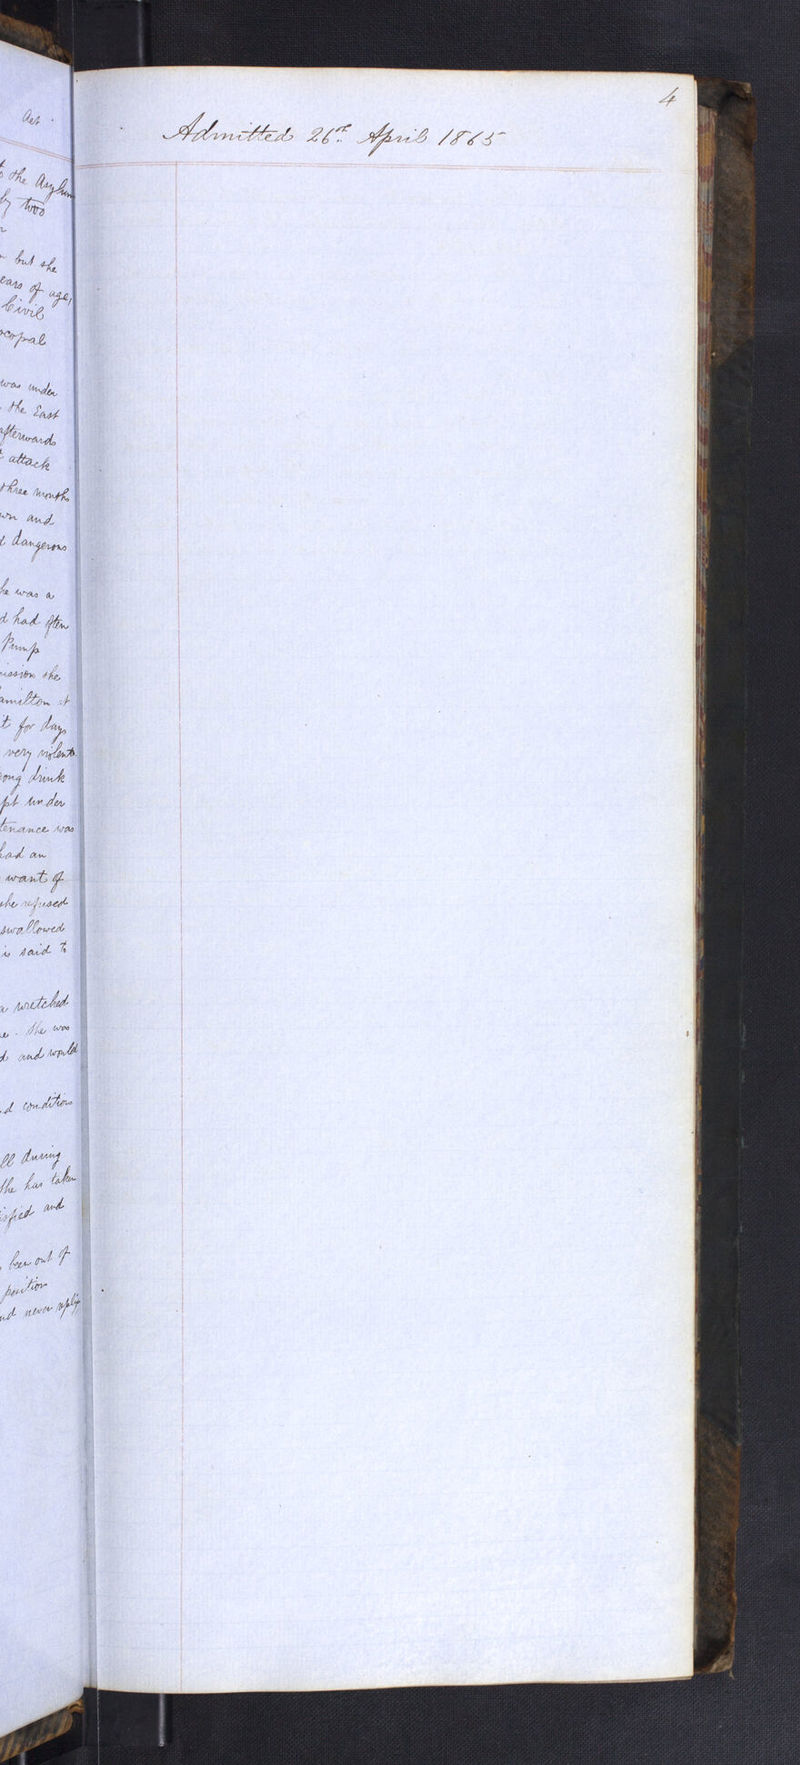 Aet
the Asylum
by two
but she
ears of age,
Civil
scopal
was under
the East
afterwards
attack
three months
wn and
d dangerous
he was a
d had often
Pump
mission she
amilton
it for days
very violent
ong drink
pt under
tenance was
had an
want of
she refused
swallowed
is said to
a wretched
She was
d and would
d condition
ll during
She has taken
and
been out of
position
nd never
4
Admitted 26th April 1865